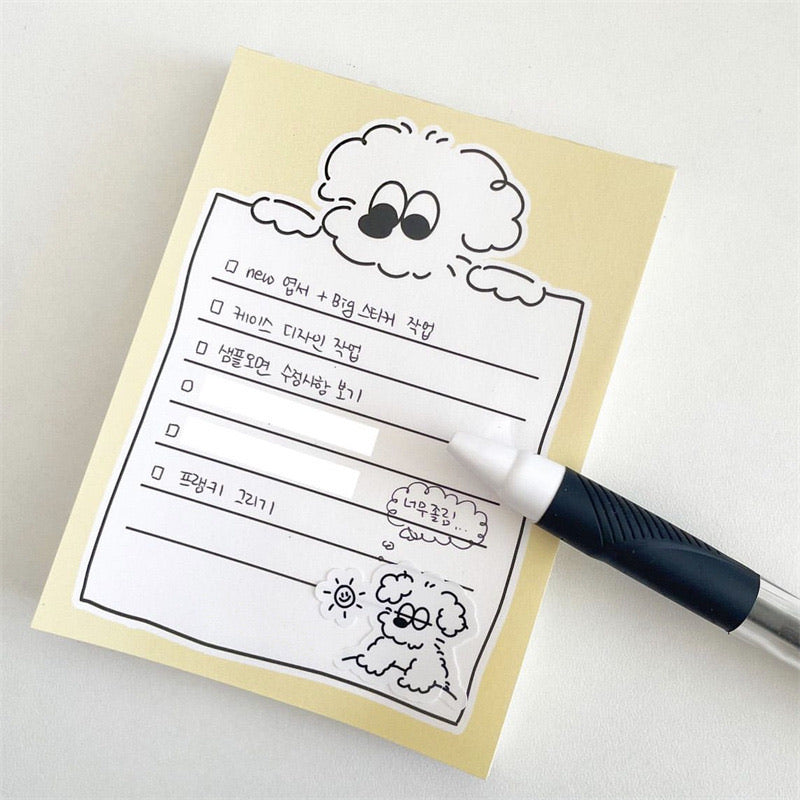 □ new 엽서 + Big 스티커 작업
□ 케이스 디자인 작업
□ 샘플오면 수정사항 보기
□
□
□ 프랭키 그리기
너무졸림...